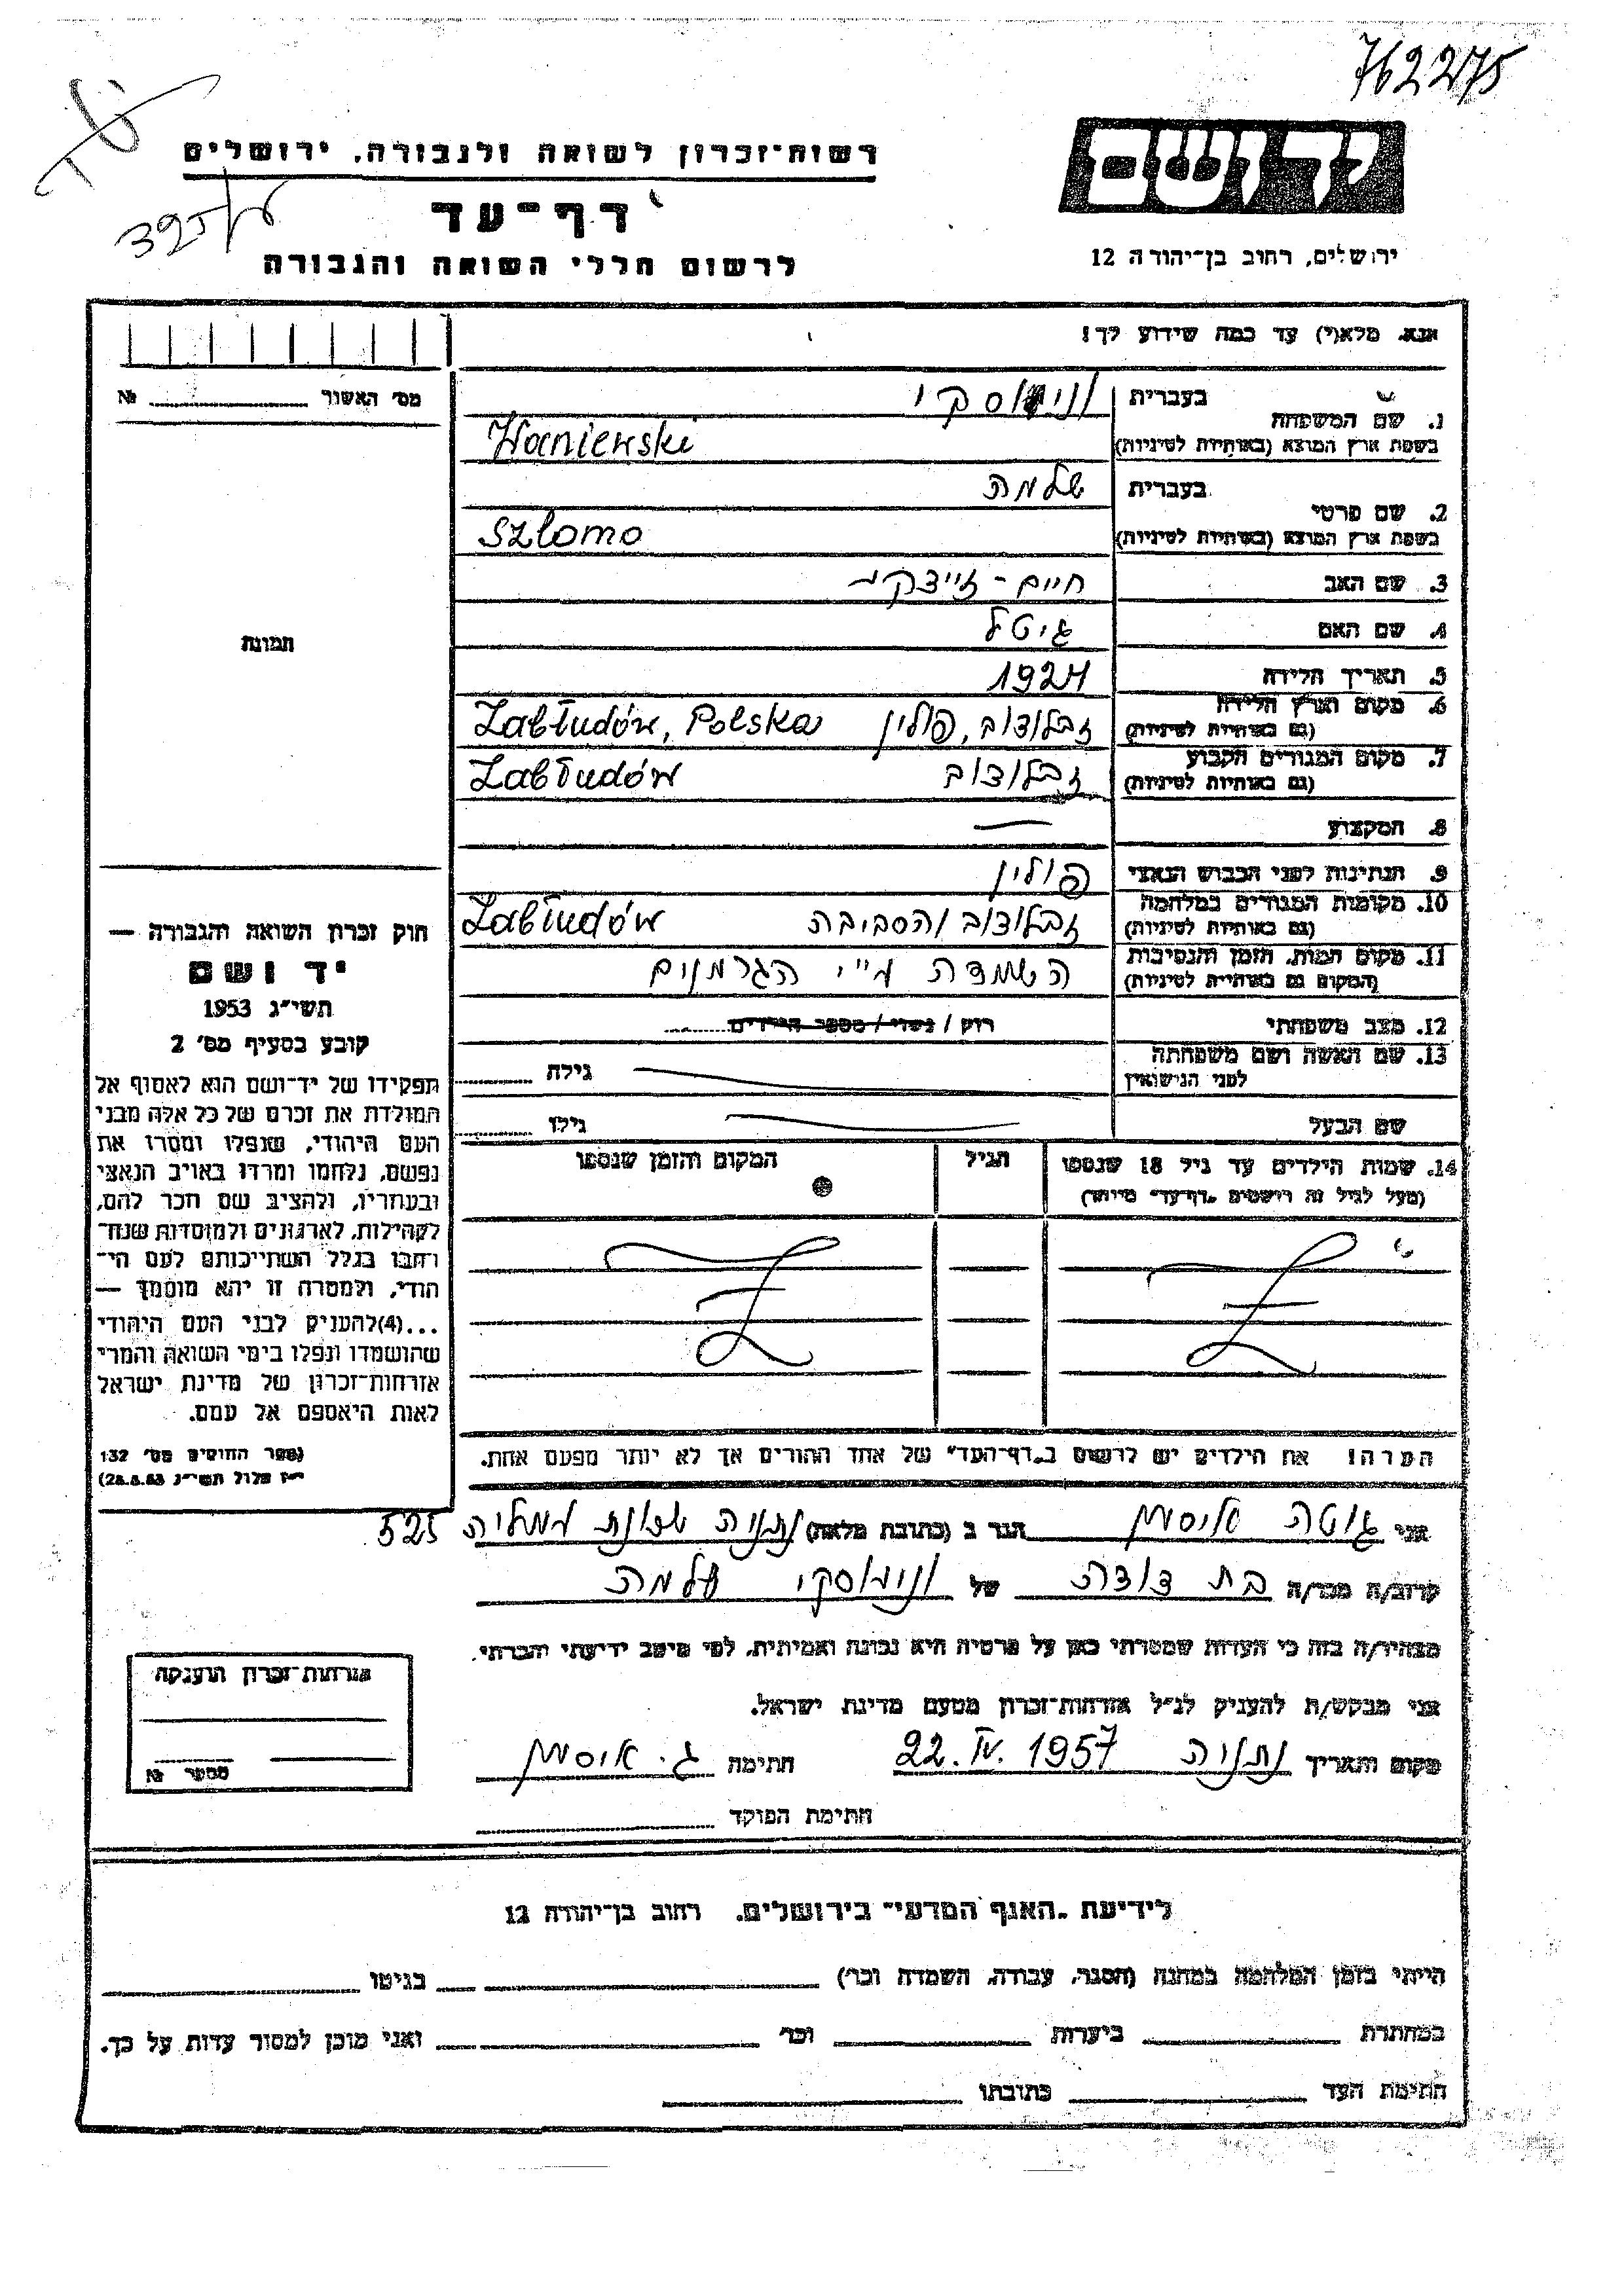 762275
רשות-זכרון לשואה ולגבורה, ירושלים
יד ושם
דף-עד
325
לרשום חללי השואה והגבורה
ירושלים, רחוב בן-יהודה 12
אנא, מלא(י) עד כמה שידוע לך!
מס׳ האשור № 
1. שם המשפחה
בעברית
בשפת ארץ המוצא (באותיות לטיניות)
Waniewski
2. שם פרטי
בעברית שלמה
בשפת ארץ המוצא (באותיות לטיניות)
Szlomo
3. שם האב חיים -
4. שם האם גיטל
תמונה
5. תאריך הלידה 1924
6. מקום וארץ הלידה (גם באותיות לטיניות) זבלודוב, פולין Zabłudów, Polska
7. מקום המגורים הקבוע (גם באותיות לטיניות) זבלודוב Zabłudów
8. המקצוע —
9. הנתינות לפני הכבוש הנאצי פולין
10. מקומות המגורים במלחמה (גם באותיות לטיניות) זבלודוב והסביבה Zabłudów
11. מקום המות, הזמן והנסיבות (המקום גם באותיות לטיניות) השמדה ע"י הגרמנים
12. מצב משפחתי רווק / נשוי / מספר הילדים
13. שם האשה ושם משפחתה לפני הנישואין גילה
שם הבעל גילו
14. שמות הילדים עד גיל 18 שנספו
(מעל לגיל זה רושמים "דף-עד" מיוחד)
הגיל
המקום והזמן שנספו
חוק זכרון השואה והגבורה —
יד ושם
תשי"ג 1953
קובע בסעיף מס׳ 2
תפקידו של יד-ושם הוא לאסוף אל
המולדת את זכרם של כל אלה מבני
העם היהודי, שנפלו ומסרו את
נפשם, נלחמו ומרדו באויב הנאצי
ובעוזריו, ולהציב שם וזכר להם,
לקהילות, לארגונים ולמוסדות שנח-
רבו בגלל השתייכותם לעם הי-
הודי, ולמטרה זו יהא מוסמך —
...(4) להעניק לבני העם היהודי
שהושמדו ונפלו בימי השואה והמרי
אזרחות-זכרון של מדינת ישראל
לאות היאספם אל עמם.
(ספר החוקים מס׳ 132
י"ז אלול תשי"ג 28.8.53)
הערה! את הילדים יש לרשום ב"דף-העד" של אחד ההורים אך לא יותר מפעם אחת.
אני גוטה הגר ב (כתובת מלאה) נתניה שכונת 525
קרוב/ה מכר/ה בת דודה של שלמה
מצהיר/ה בזה כי העדות שמסרתי כאן על פרטיה היא נכונה ואמיתית, לפי מיטב ידיעתי והכרתי.
אני מבקש/ת להעניק לנ"ל אזרחות-זכרון מטעם מדינת ישראל.
מקום ותאריך נתניה 22.IV.1957 חתימה ג.
חתימת הפוקד
אזרחות-זכרון הוענקה
מספר №
לידיעת "האגף המדעי" בירושלים, רחוב בן-יהודה 12
הייתי בזמן המלחמה במחנה (הסגר, עבודה, השמדה וכו׳) בגיטו
במחתרת ביערות וכו׳ ואני מוכן למסור עדות על כך.
חתימת העד כתובתו